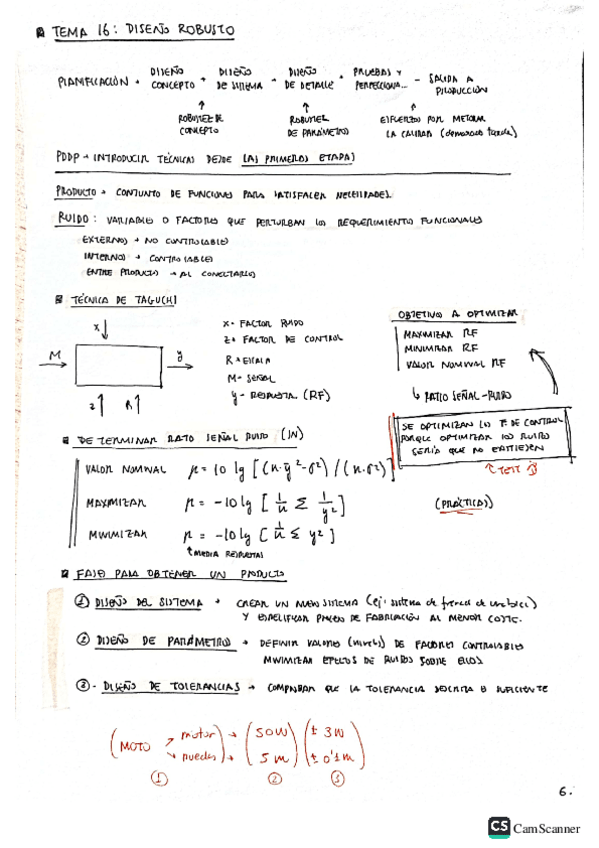 TEMA 16: DISEÑO ROBUSTO
PLANIFICACIÓN → DISEÑO CONCEPTO → DISEÑO DE SISTEMA → DISEÑO DE DETALLE → PRUEBAS Y PERFECCIONA... → SALIDA A PRODUCCIÓN
↑ ROBUSTEZ DE CONCEPTO
↑ ROBUSTEZ DE PARÁMETROS
↑ ESFUERZOS POR MEJORAR LA CALIDAD (demasiado tarde)
PDDP → INTRODUCIR TÉCNICAS DESDE LAS PRIMERAS ETAPAS
PRODUCTO → CONJUNTO DE FUNCIONES PARA SATISFACER NECESIDADES.
RUIDO: VARIABLES O FACTORES QUE PERTURBAN LOS REQUERIMIENTOS FUNCIONALES
EXTERNOS → NO CONTROLABLES
INTERNOS → CONTROLABLES
ENTRE PRODUCTOS → AL CONECTARLOS
TÉCNICA DE TAGUCHI
X
M
y
Z
R
X- FACTOR RUIDO
Z- FACTOR DE CONTROL
R- ESCALA
M- SEÑAL
y- RESPUESTA (RF)
OBJETIVO A OPTIMIZAR
MAXIMIZAR RF
MINIMIZAR RF
VALOR NOMINAL RF
↳ RATIO SEÑAL-RUIDO
SE OPTIMIZAN LOS F. DE CONTROL
PORQUE OPTIMIZAR LOS RUIDO
SERÍA QUE NO EXISTIESEN
↑ TEST
DETERMINAR RATIO SEÑAL RUIDO (SN)
VALOR NOMINAL μ = 10 lg [(n·ȳ²-σ²) / (n·σ²)]
MAXIMIZAR μ = -10 lg [1/n Σ 1/y²]
MINIMIZAR μ = -10 lg [1/n Σ y²]
↑ MEDIA RESPUESTAS
(PRÁCTICAS)
FASES PARA OBTENER UN PRODUCTO
① DISEÑO DEL SISTEMA → CREAR UN NUEVO SISTEMA (ej: sistema de frenos de
Y ESPECIFICAR PROCESO DE FABRICACIÓN AL MENOR COSTE.
② DISEÑO DE PARÁMETROS → DEFINIR VALORES (niveles) DE FACTORES CONTROLABLES
MINIMIZAR EFECTOS DE RUIDOS SOBRE ELLOS
③- DISEÑO DE TOLERANCIAS → COMPROBAR QUE LA TOLERANCIA DESCRITA ES SUFICIENTE
(MOTO → motor) → (50W) (± 3W)
→ ruedas → (5m) (± 0'1m)
① ② ③
6.
CS CamScanner